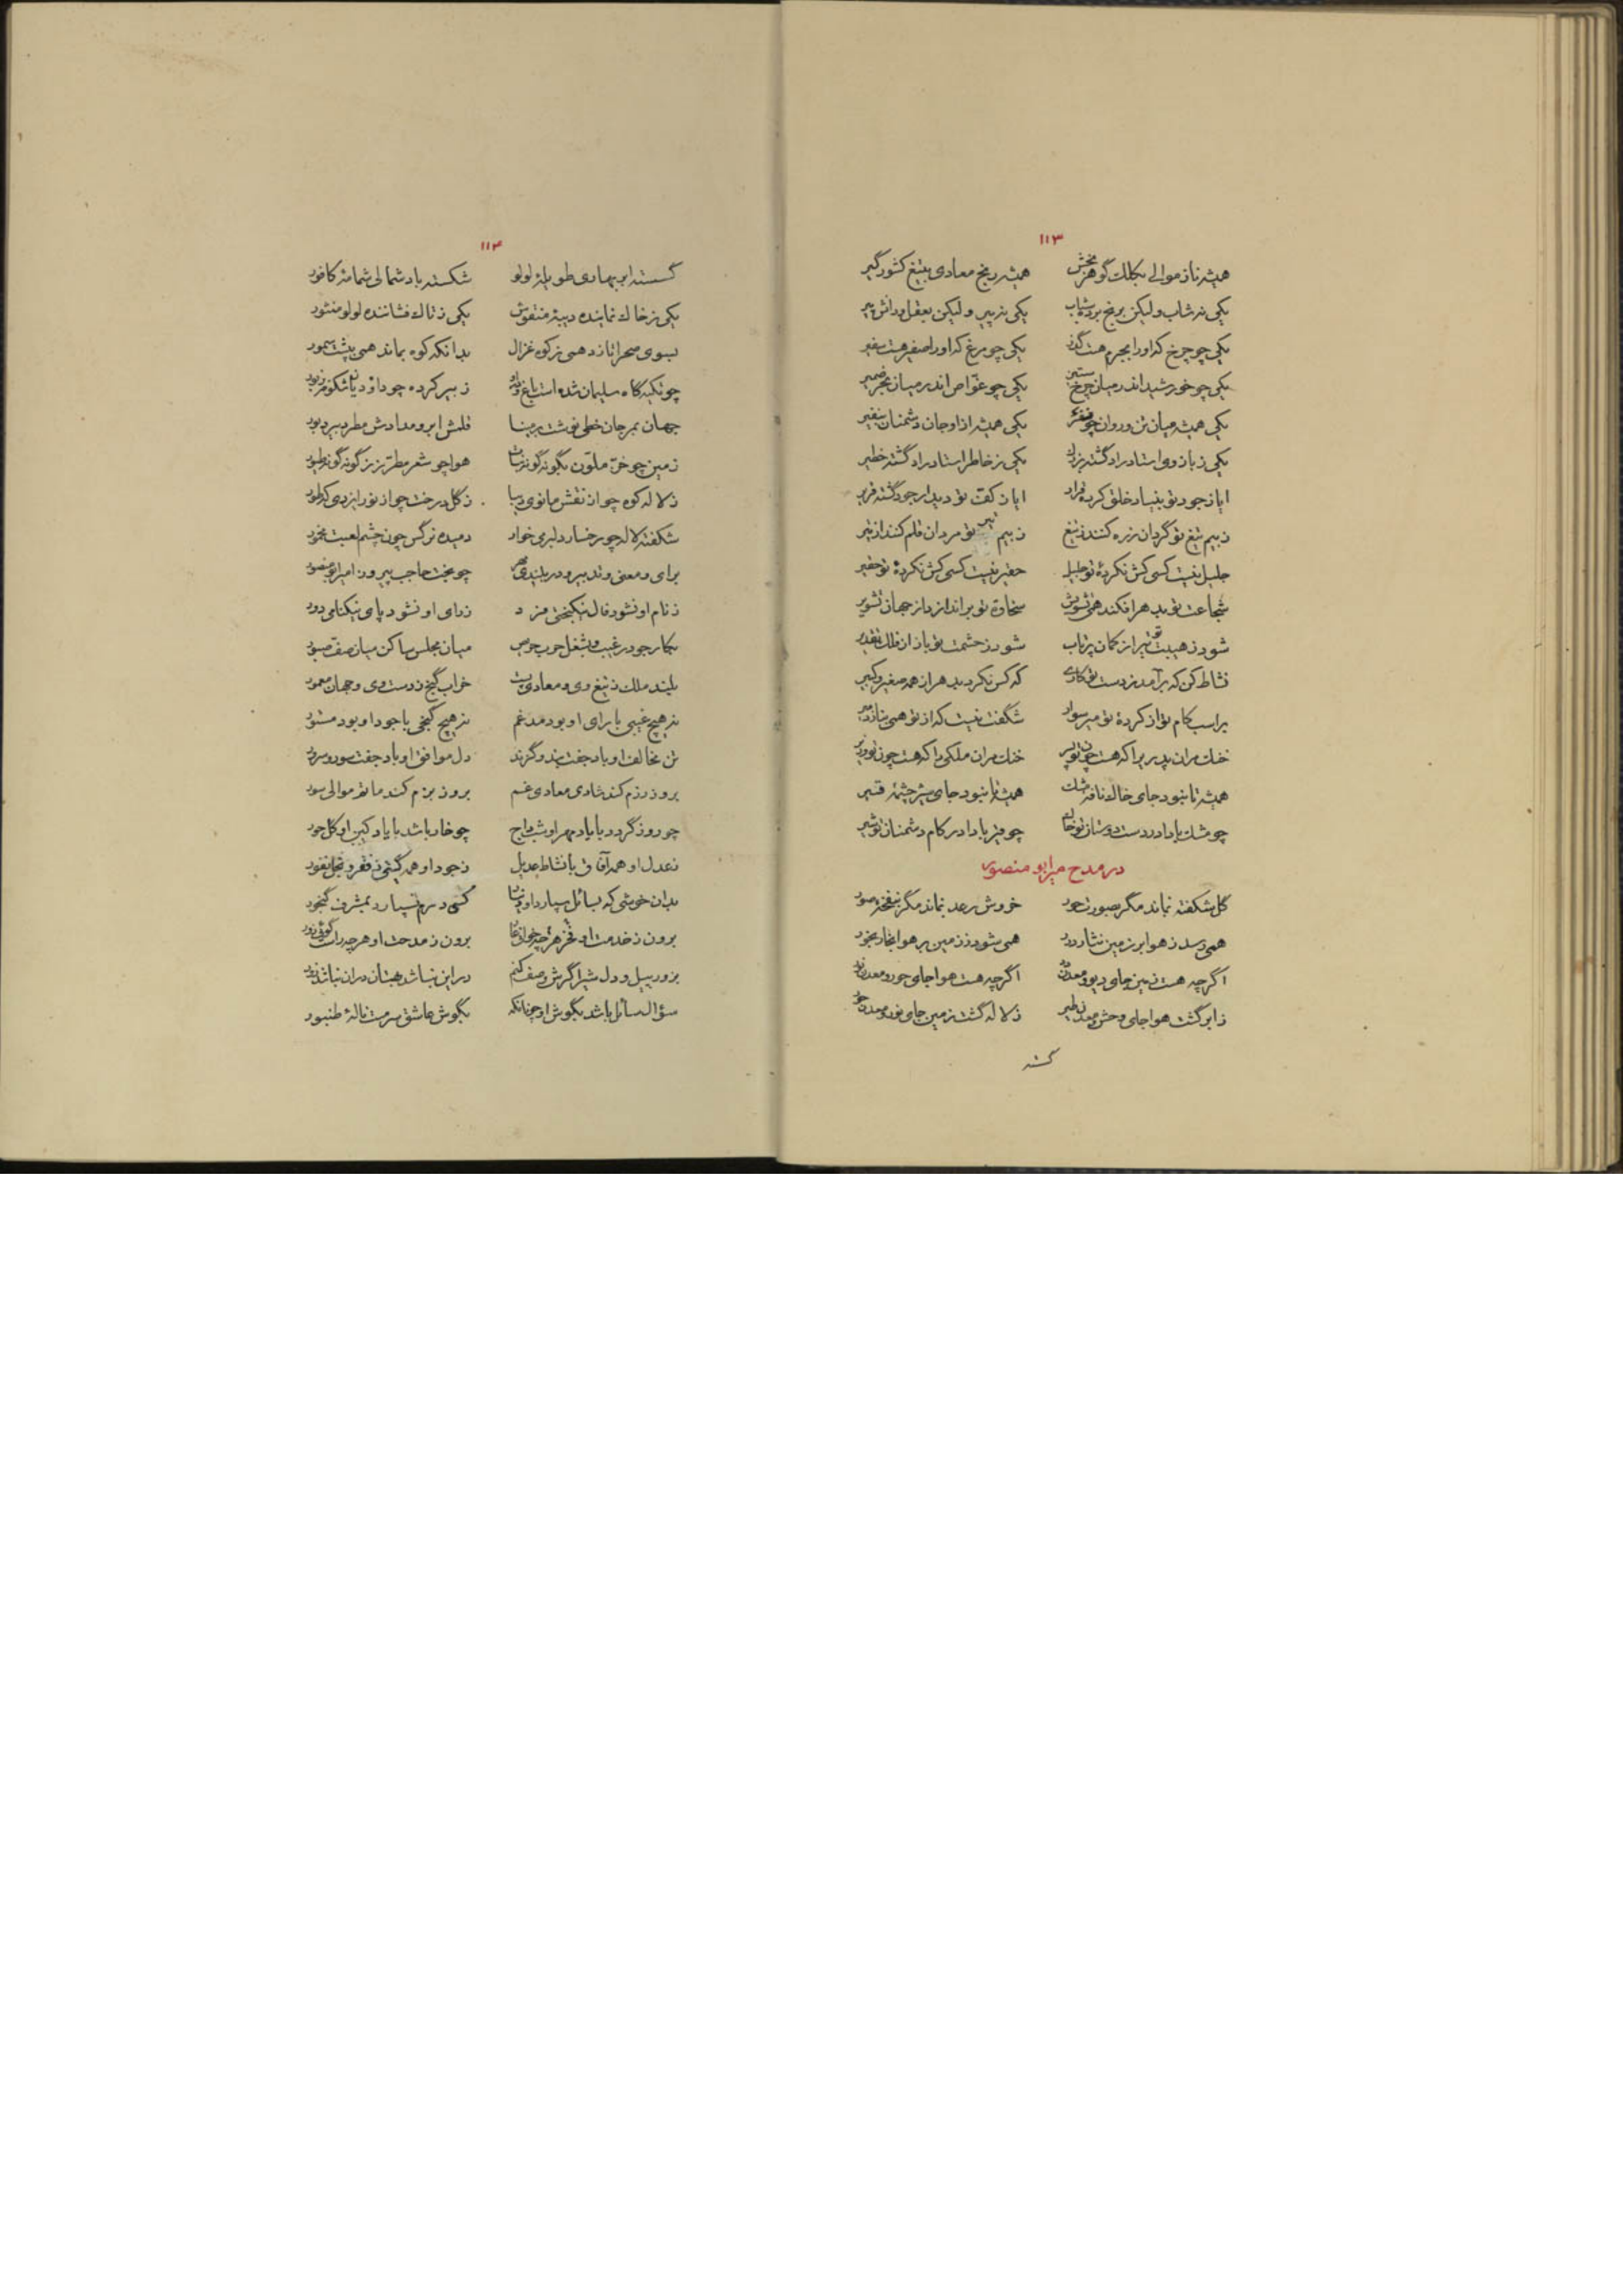 ۱۱۳
همیشه ناز موالی بکلک گوهر بخش همیشه رنج معادی بتیغ کشور گیر
یکی نه شاب ولیکن برنج برده شاب یکی نه پیر ولیکن بعقل و دانش پیر
یکی چو چرخ که او را بجرم هست گذر یکی چو مرغ که او را صفیر هست سفیر
یکی چو خورشید اندر میان چرخ یکی چو غواص اندر میان بحر ضمیر
یکی همیشه میان تن و روان چو یکی همیشه ازو جان دشمنان بنفیر
یکی ز بازوی استاد راد گشته بزرگ یکی ز خاطر استاد راد گشته خطیر
ایا ز جود تو بنیاد خلق کرده قرار ایا ز کف تو دیدار جود گشته قریر
ز بیم تیغ تو گردان زره کنند ز تیغ ز بیم تیر تو مردان قلم کنند از تیر
جلیل نیست کسی کش نکردهٔ تو جلیل حقیر نیست کسی کش نکردهٔ تو حقیر
شجاعت تو بدهر افکند همی تشویش سخاوة تو براندازد از جهان تشویر
شود ز هیبت تو تیر از کمان پرتاب شود ز حشمت تو باز از فلک تقدیر
نشاط کن که برآمد ز دست تو کاری که کس نکرد بدهر از همه صغیر و کبیر
بر اسب کام تو از کردهٔ تو میر سوار شگفت نیست که از تو همی بنازد میر
خنک مران پدریرا که هست چون تو پسر خنک مران ملکی را که هست چون تو وزیر
همیشه تا نبود جای خاک نافه مشک همیشه تا نبود جای شیر چشمهٔ قیر
چو مشک بادا در دست دوستان تو خاک چو قیر بادا در کام دشمنان تو شیر
در مدح میر ابو منصور
گل شکفته نماند مگر بصورت حور خروش رعد نماند مگر بنفخهٔ صور
همی رسد ز هوا بر زمین نثار درر همی شود ز زمین بر هوا بخار بخور
اگرچه هست زمین جای دیو و معدن اگرچه هست هوا جای حور و معدن
ز ابر گشت هوا جای وحش و معدن طیر ز لاله گشت زمین جای نور و معدن حور
گسسته
۱۱۴
گسسته ابر بهاری طویلهٔ لولو شکسته باد شمالی شمامهٔ کافور
یکی ز خاک نماینده دیبهٔ منقوش یکی ز تاک فشاننده لولو منثور
بسوی صحرا تازد همی ز کوه غزال بدانکه کوه بماند همی بپشت سمور
چو تکیه گاه سلیمان شده است باغ ز بر کرده چو داود
جهان بمرجان خطی نوشت بر مینا قلمش ابر و مدادش مطر دبیر دبور
زمین چو خز ملون بگونه گونه هوا چو شعر مطرز ز گونه گونه طیور
ز لاله کوه چو از نقش مانوی دیبا ز گل درخت چو از نور ایزدی که طور
شکفته لاله چو رخسار دلبری خوار دمیده نرگس چون چشم لعبت مخمور
برای و معنی و تدبیر و در بلندی چو بخت حاجب پیروز امیر ابو منصور
ز نام او نشود فال نیکبختی ز رای او نشود پای نیکنامی دور
بکار جود و بشغل حرب میان مجلس ساکن میان صف صبور
بلند ملک ز تیغ وی و معادی پست خراب گنج ز دست وی و جهان معمور
نه هیچ غیبی با رای او بود مدغم نه هیچ گنجی با جود او بود مستور
تن مخالف او باد جفت بند و گزند دل موافق او باد جفت سور و سرور
بروز رزم کند شادی معادی غم بروز بزم کند ماتم موالی سور
چو روز گردد با یاد مهر او شب داج چو خار باشد با یاد کین او گل
ز عدل او همه آفاق با نشاط عدیل ز جود او همه گیتی ز فقر و بخل نفور
بدان خوشی که بسائل سپارد او کسی درم نسپارد بمشرف گنجور
برون ز خدمت او فخر هرچه خوانی برون ز مدحت او هرچه گوئی زور
بزور پیل و دل شیر اگرش وصف کنم در این نباشد بهتان در آن نباشد زور
سؤال سائل باشد بگوش او چونانکه بگوش عاشق سرمست نالهٔ طنبور